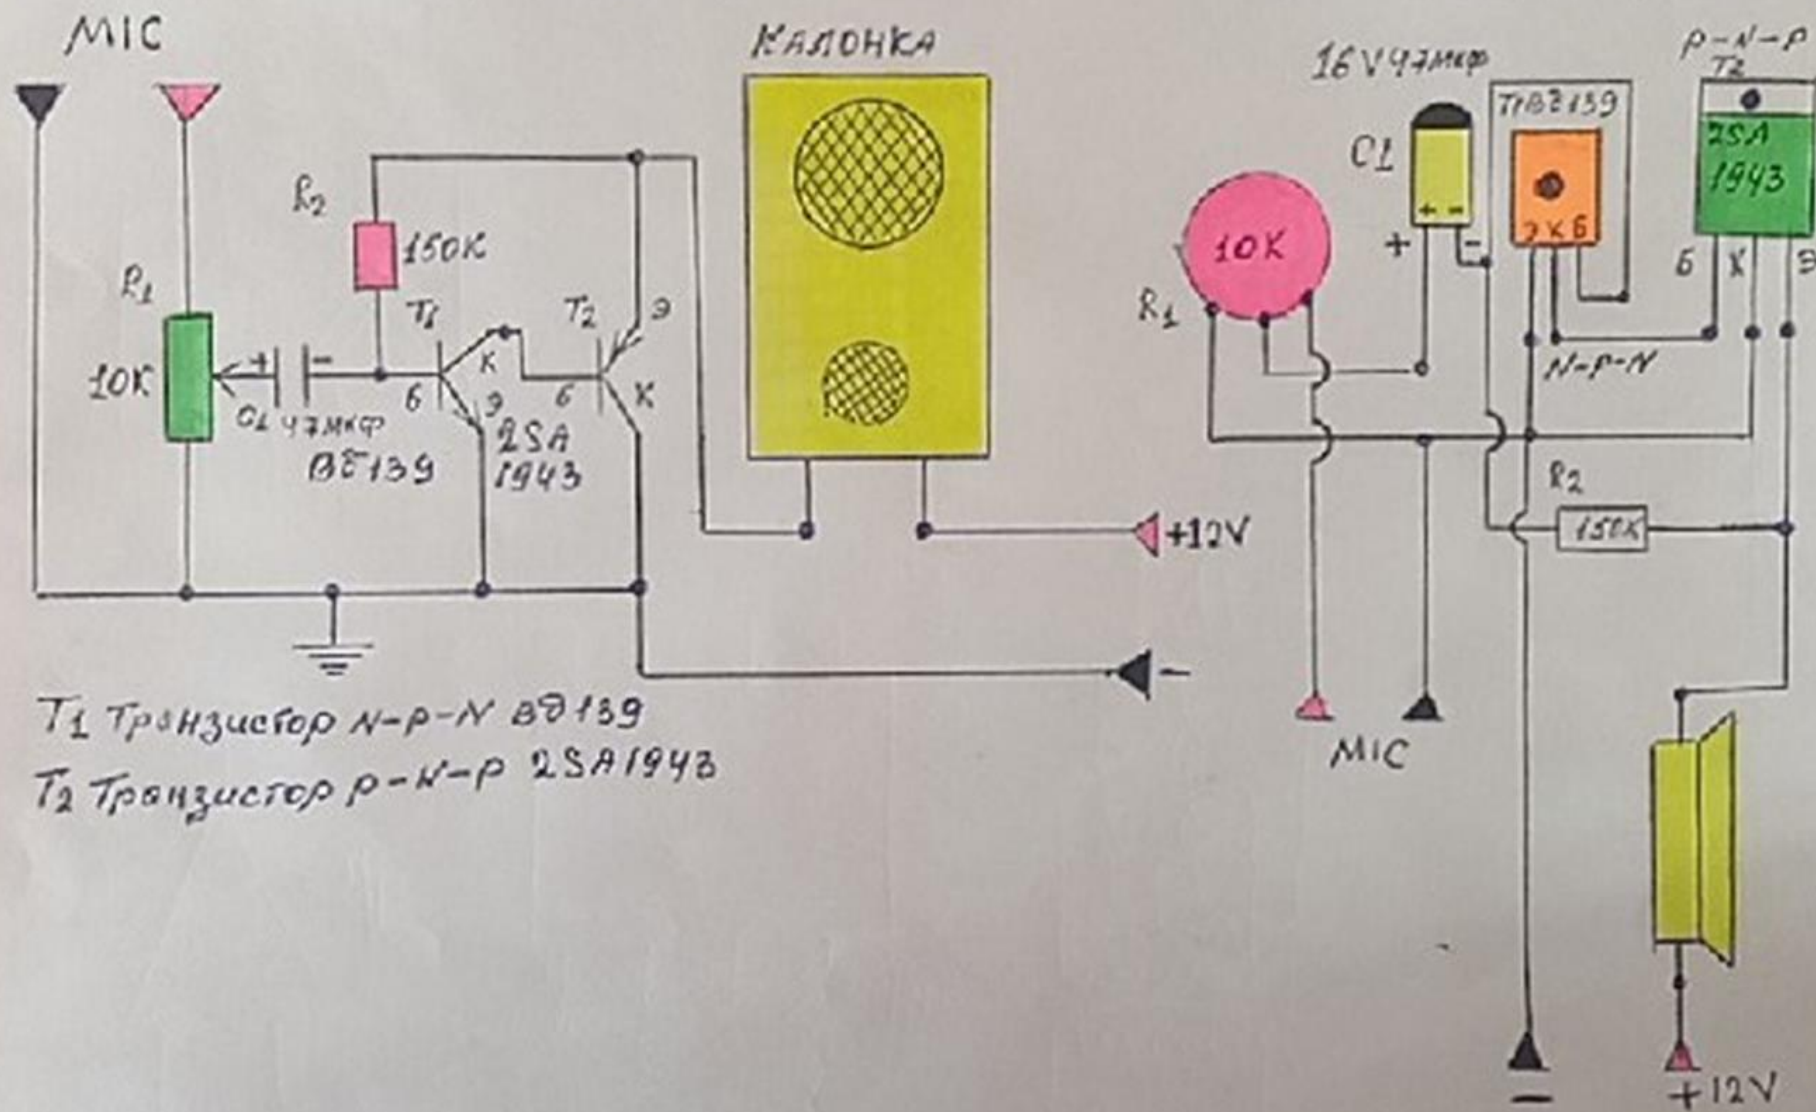 MIC
КАЛОНКА
R2
150К
R1
10К
+ -
C1 47мкф
T1
К
Б
Э
BD139
T2
Э
Б
К
2SA
1943
+12V
-
T1 Транзистор N-P-N BD139
T2 Транзистор P-N-P 2SA1943
16V47мкф
C1
+ -
+ -
T1BD139
Э К Б
P-N-P
T2
2SA
1943
Б К Э
10К
R1
N-P-N
R2
150К
MIC
-
+12V